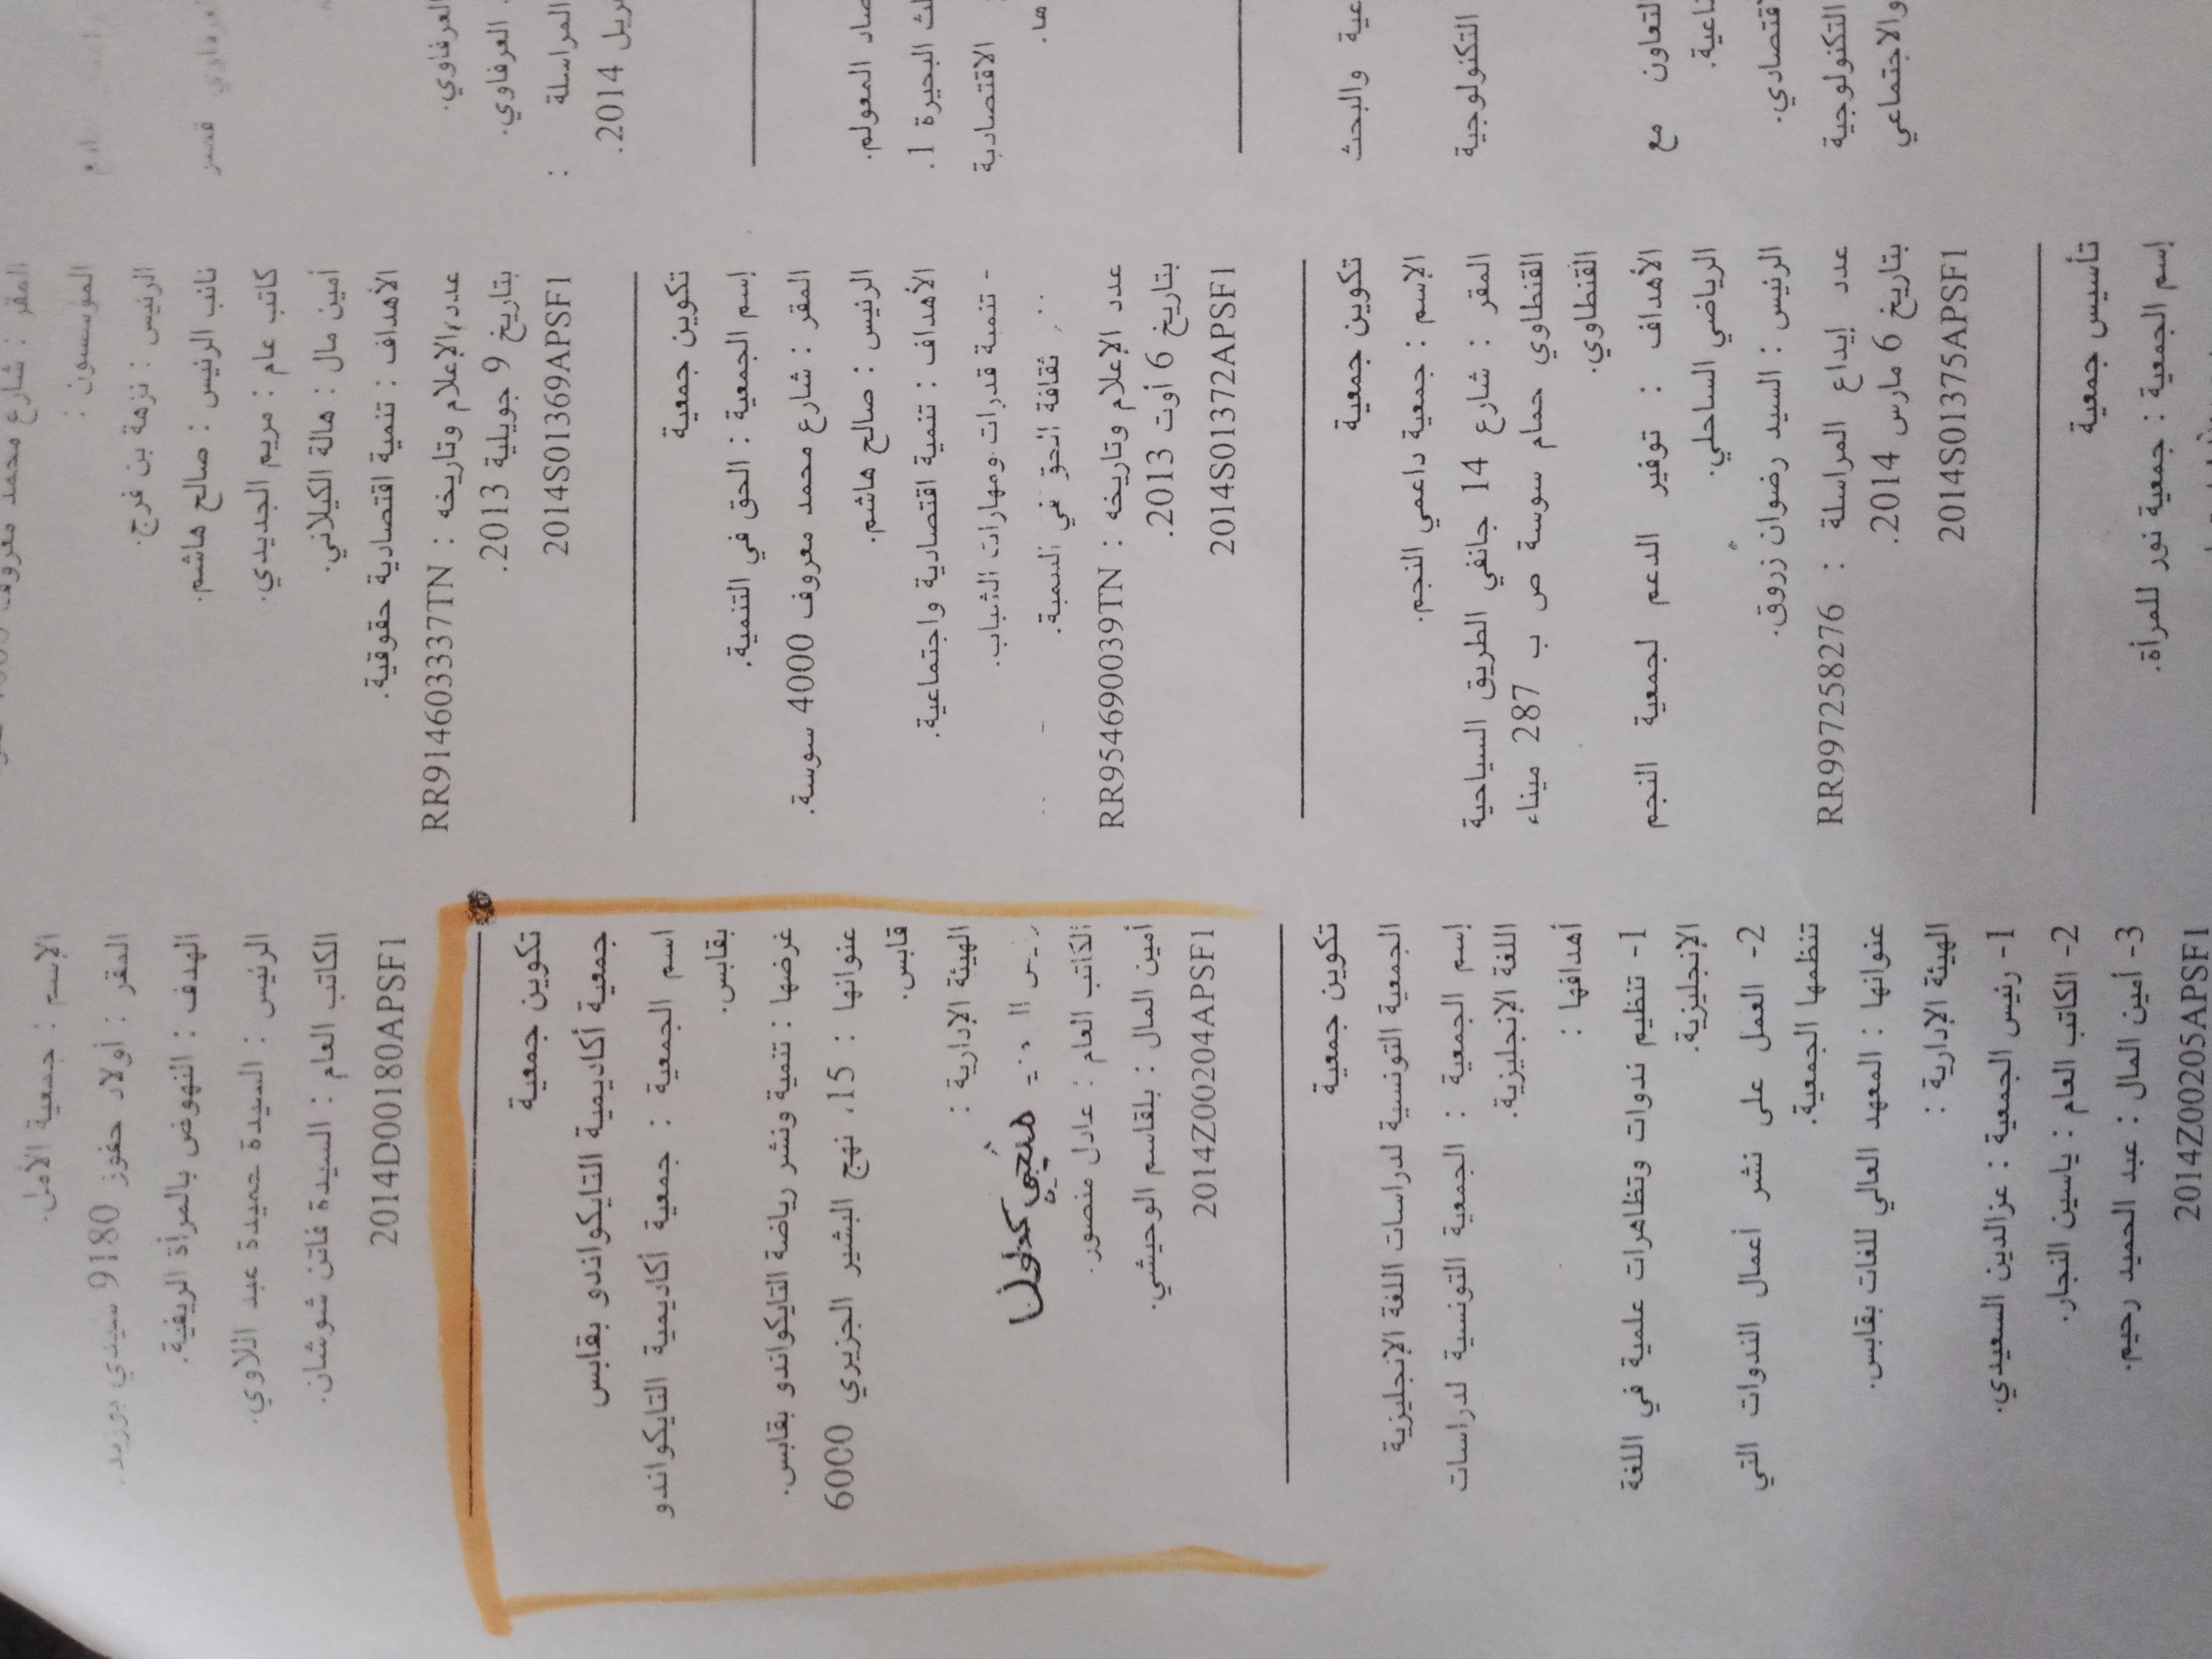 العرفاوي.
العرفاوي.
المراسلة :
2014.
المعولم.
البحيرة 1.
الاقتصادية
ها.
والبحث
التكنولوجية
التعاون مع
التكنولوجية
والاجتماعي
المقر : شارع محمد معروف
المؤسسون :
الرئيس : نزهة بن فرج.
نائب الرئيس : صالح هاشم.
كاتب عام : مريم الجديدي.
أمين مال : هالة الكيلاني.
الأهداف : تنمية اقتصادية حقوقية.
عدد الإعلام وتاريخه : RR914603337TN
بتاريخ 9 جويلية 2013.
2014S01369APSF1
تكوين جمعية
إسم الجمعية : الحق في التنمية.
المقر : شارع محمد معروف 4000 سوسة.
الرئيس : صالح هاشم.
الأهداف : تنمية اقتصادية واجتماعية.
- تنمية قدرات ومهارات الشباب.
ثقافة الحق في التنمية.
عدد الإعلام وتاريخه : RR954690039TN
بتاريخ 6 أوت 2013.
2014S01372APSF1
تكوين جمعية
الإسم : جمعية داعمي النجم.
المقر : شارع 14 جانفي الطريق السياحية
القنطاوي حمام سوسة ص ب 287 ميناء
القنطاوي.
الأهداف : توفير الدعم لجمعية النجم
الرياضي الساحلي.
الرئيس : السيد رضوان زروق.
عدد إيداع المراسلة : RR997258276
بتاريخ 6 مارس 2014.
2014S01375APSF1
تأسيس جمعية
إسم الجمعية : جمعية نور للمرأة.
الإسم : جمعية الأمل.
المقر : أولاد حفوز 9180 سيدي بوزيد.
الهدف : النهوض بالمرأة الريفية.
الرئيس : السيدة حميدة عبد اللاوي.
الكاتب العام : السيدة فاتن شوشان.
2014D00180APSF1
تكوين جمعية
جمعية أكاديمية التايكواندو بقابس
اسم الجمعية : جمعية أكاديمية التايكواندو
بقابس.
غرضها : تنمية ونشر رياضة التايكواندو بقابس.
عنوانها : 15، نهج البشير الجزيري 6000
قابس.
الهيئة الإدارية :
منجي
الكاتب العام : عادل منصور.
أمين المال : بلقاسم الوحيشي.
2014Z00204APSF1
تكوين جمعية
الجمعية التونسية لدراسات اللغة الإنجليزية
إسم الجمعية : الجمعية التونسية لدراسات
اللغة الإنجليزية.
أهدافها :
1- تنظيم ندوات وتظاهرات علمية في اللغة
الإنجليزية.
2- العمل على نشر أعمال الندوات التي
تنظمها الجمعية.
عنوانها : المعهد العالي للغات بقابس.
الهيئة الإدارية :
1- رئيس الجمعية : عزالدين السعيدي.
2- الكاتب العام : ياسين النجار.
3- أمين المال : عبد الحميد رحيم.
2014Z00205APSF1